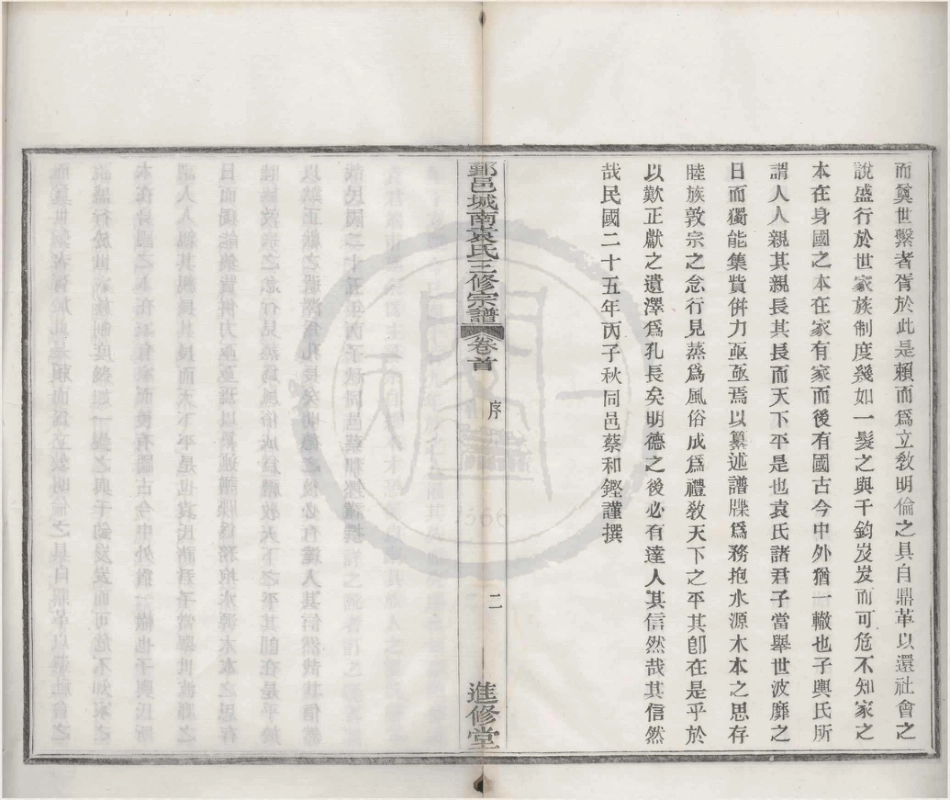 而奠世繫者胥於此是賴而爲立敎明倫之具自鼎革以還社會之
說盛行於世家族制度幾如一髮之與千鈞岌岌而可危不知家之
本在身國之本在家有家而後有國古今中外猶一轍也子輿氏所
謂人人親其親長其長而天下平是也袁氏諸君子當舉世波靡之
日而獨能集貲併力亟亟焉以纂述譜牒爲務抱水源木本之思存
睦族敦宗之念行見蒸爲風俗成爲禮敎天下之平其卽在是乎於
以歎正獻之遺澤爲孔長矣明德之後必有達人其信然哉其信然
哉民國二十五年丙子秋同邑蔡和鏗謹撰
鄞邑城南袁氏三修宗譜 卷首 序 二 進修堂